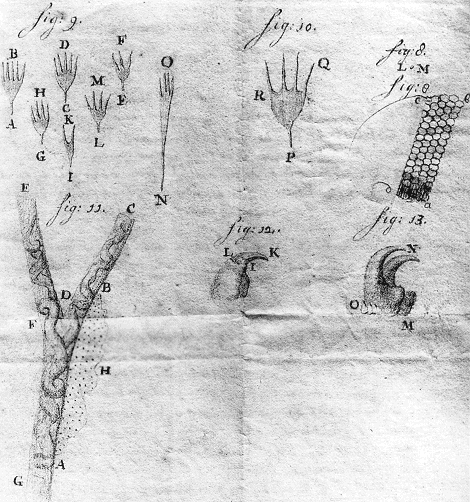 fig: 9.
B
D
F
H
C
K
M
E
A
G
L
I
O
N
fig: 10.
Q
R
P
fig: 8.
L M
fig: 8
c
a
E
fig: 11.
C
D
B
F
H
A
G
fig: 12.
L K
I
fig: 13.
N
O
M